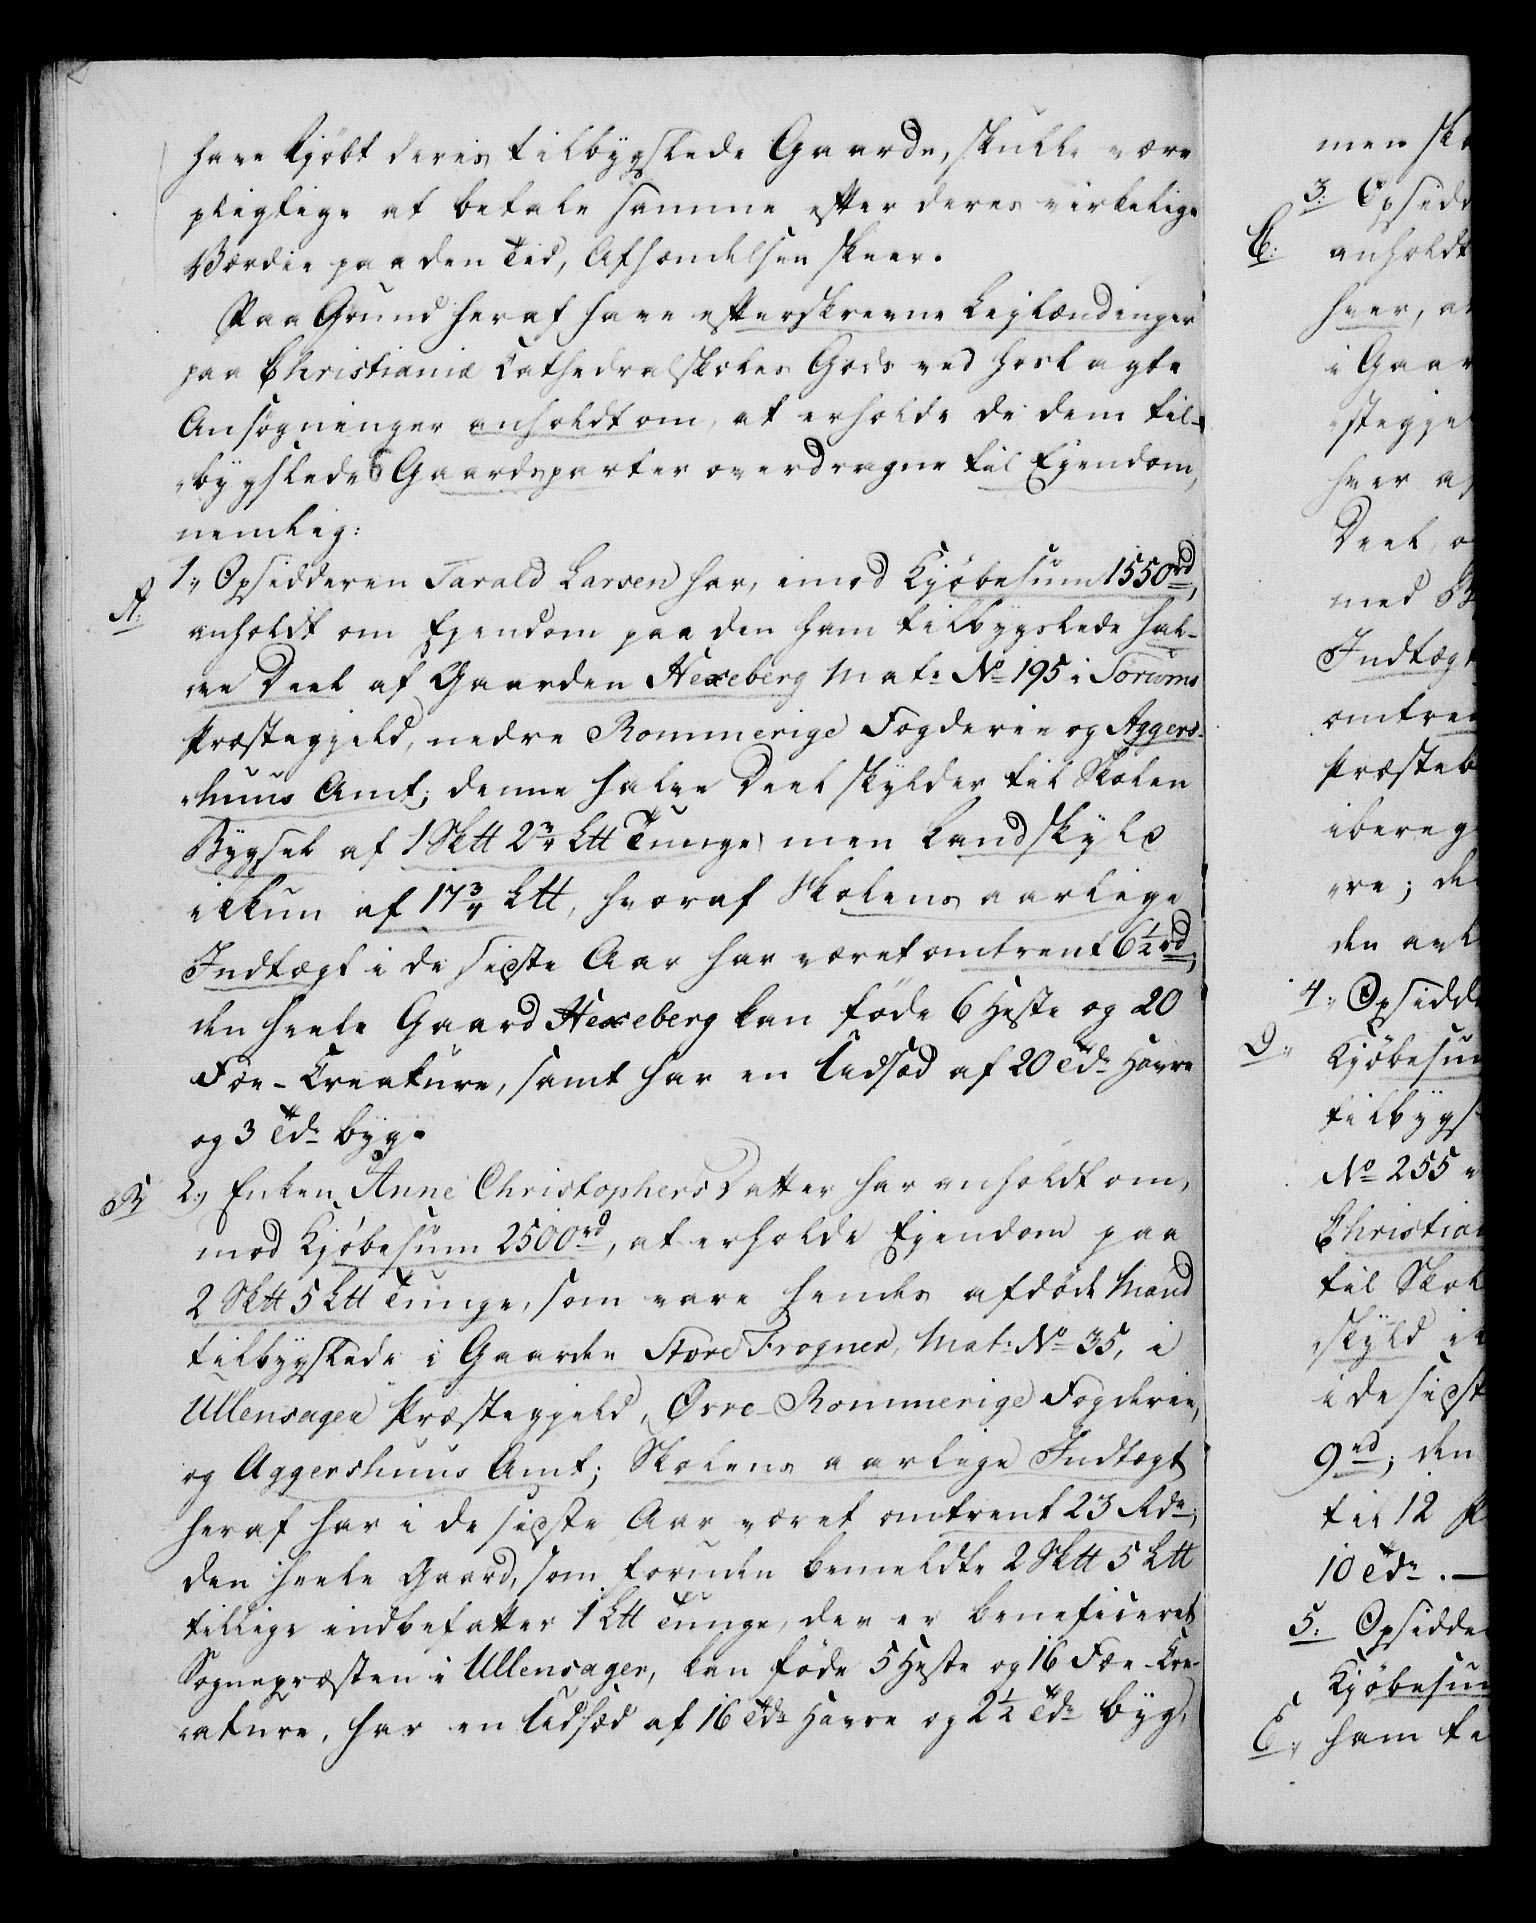 have kjöbt deris tilbygslede Gaarde, skulle være
pligtige at betale samme efter deres virkelige
Værdie paa den Tid, Afhændelsen skeer.
Paa Grund heraf have efterskrevne Leylændinger
paa Christianiæ Cathedralskoles Gods ved hoslagte
Ansøgninger anholdt om, at erholde de dem til-
bygslede Gaardsparter overdragne til Ejendom,
nemlig:
A: 1., Opsidderen Tarald Larsen har, imod Kjöbesum 1550rd,
anholdt om Ejendom paa den ham tilbygslede hal-
ve Deel af Gaarden Hexeberg Mat: No 195 i Sörums
Præstegjeld, nedre Rommerige Fogderie og Aggers-
huus Amt; denne halve Deel skylder til Skolen
Bygsel af 1 Sktt 2¾ Ltt Tunge, men Landskyld
ikkun af 17¾ Ltt, hvoraf Skolens aarlige
Indtægt i de sidste Aar har været omtrent 6½ rd,
den heele Gaard Hexeberg kan föde 6 Heste og 20
Fæ-Creature, samt har en Udsæd af 20 Tdr Havre
og 3 Tdr Byg.
B 2., Enken Anne Christophers Datter har anholdt om,
mod Kjöbesum 2500rd, at erholde Ejendom paa
2 Sktt 5 Ltt Tunge, som vare hendes afdöde Mand
tilbygslede i Gaarden Store Frogner, Mat: No 35, i
Ullensager Præstegjeld, Øvre-Rommerige Fogderie,
og Aggershuus Amt; Skolens aarlige Indtægt
heraf har i de sidste Aar været omtrent 23 Rdr,
den heele Gaard, som foruden bemeldte 2 Sktt 5 Ltt
tillige indbefatter 1 Ltt Tunge, der er beneficeret
Sognepræsten i Ullensager, kan föde 5 Heste og 16 Fæe-Cre-
ature, har en Udsæd af 16 Tdr Havre og 2½ Tdr Byg,
men sko
3: Opsidd
C: anholdt
hver, a
i Gaar
stegje
hver af
Deel, o
med
Indtægt
omtren
Præsteb
ibereg
re; de
den an
4., Opsidde
D., Kjöbesum
tilbygs
No 255 i
Christian
til Skol
skyld i
i de sidst
9rd; den
til 12
10 Tdr. —
5: Opsidde
Kjöbesum
E., ham ti